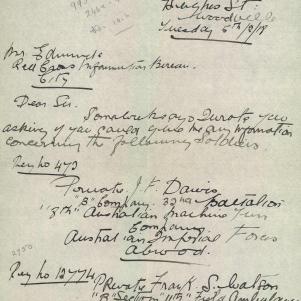 Hughes St.
Woodville
Tuesday 5th/9/18
Mr Edmunds
Red Cross Information Bureau.
City
Dear Sir.
Some weeks ago I wrote you
asking if you could give me any information
concerning the following soldiers.
Reg no 473
Private J. F. Davis
"B" Company. 32nd Battalion
"8th" Australian Machine Gun
Company
Australian Imperial Forces
Abroad.
2950
Reg no 12774
Private Frank S. Watson
"B" Section "11th" Field Ambulance